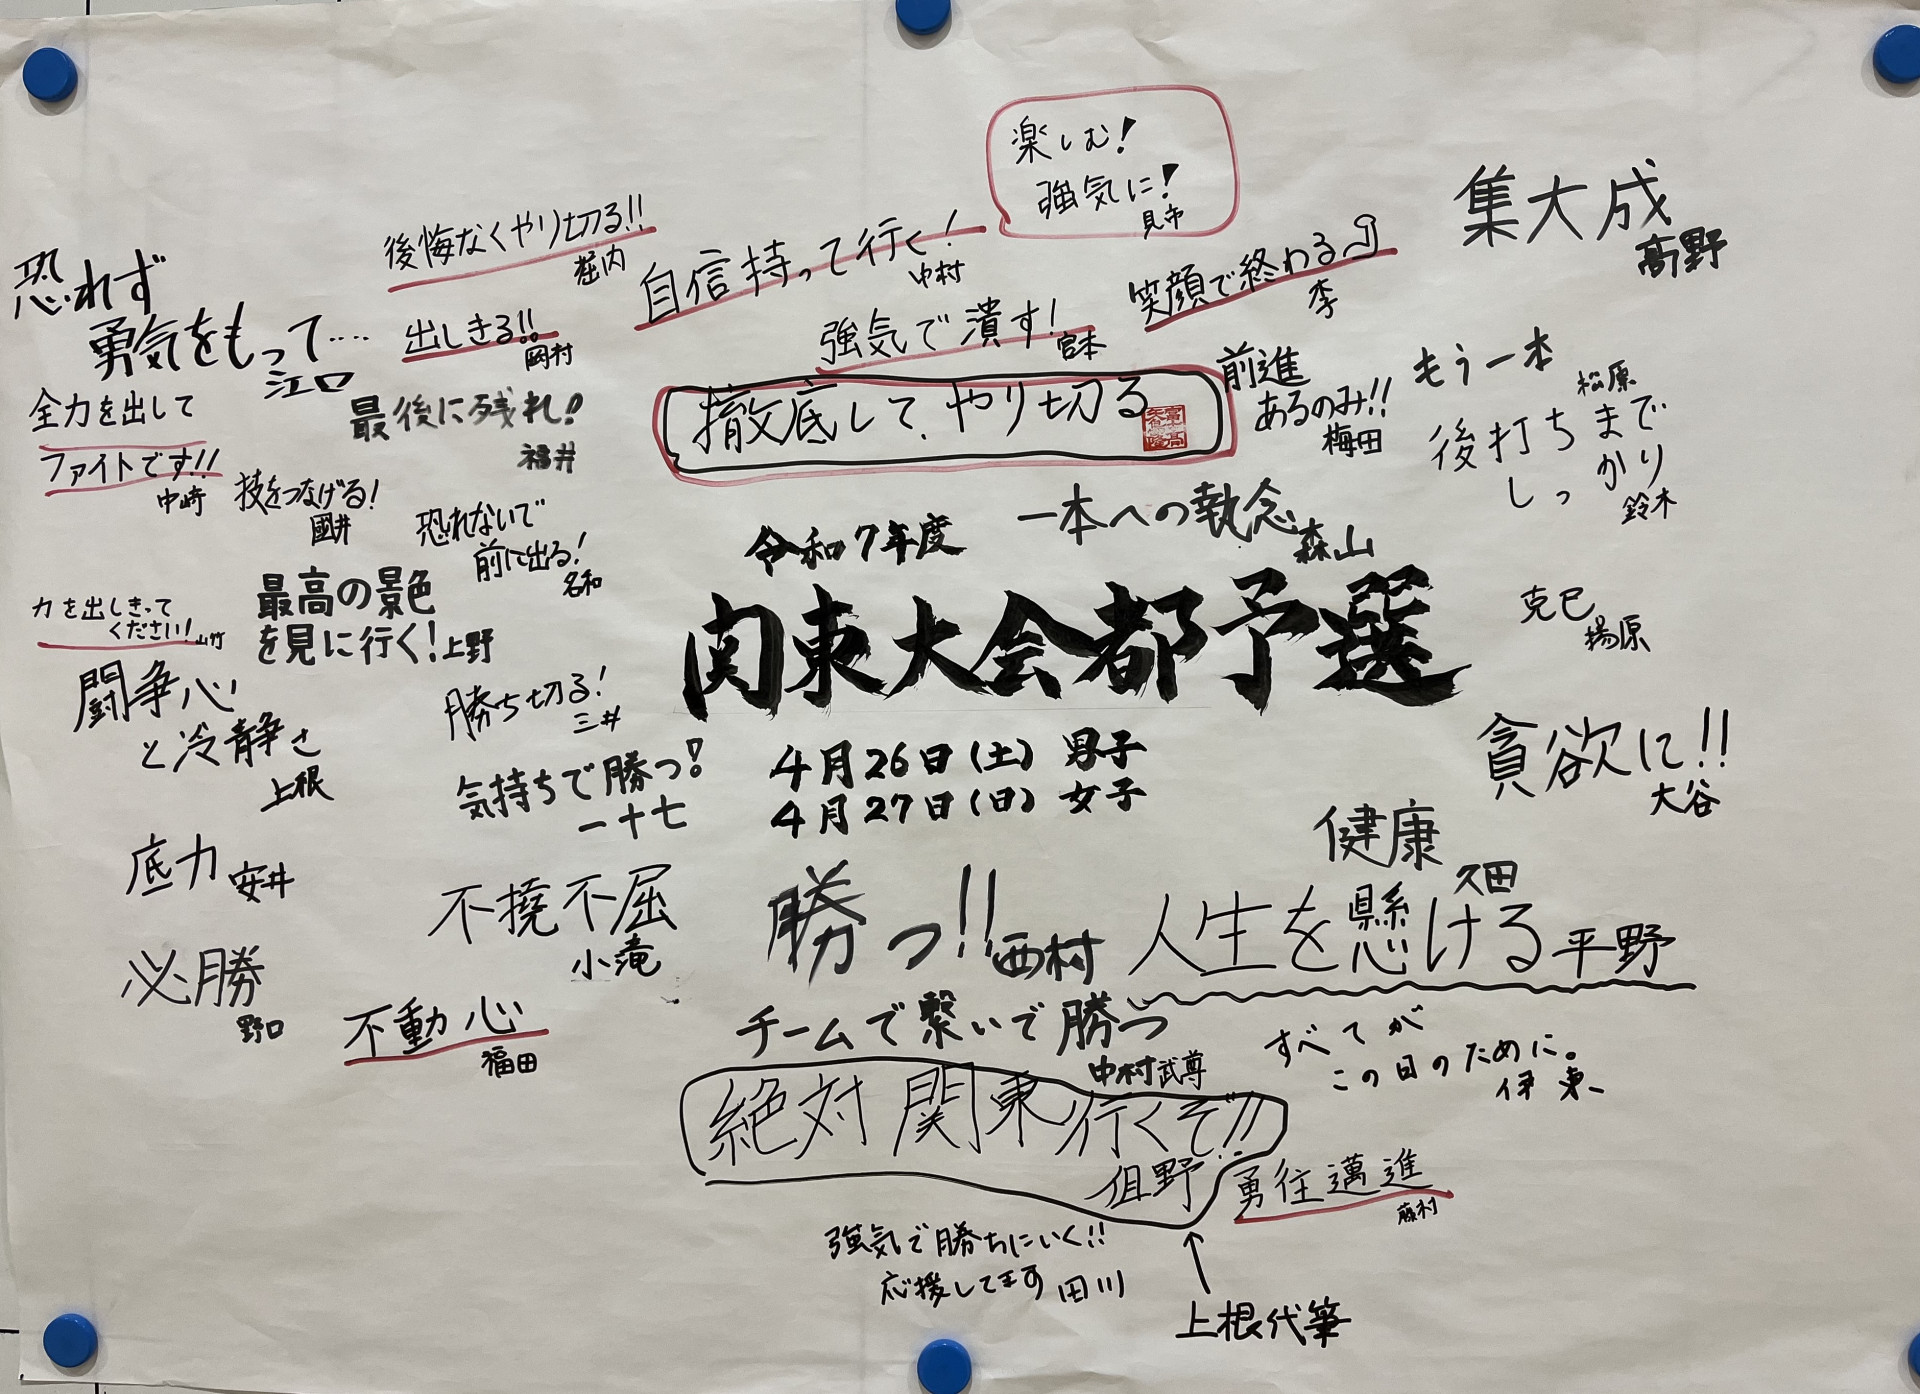 楽しむ!
強気に!
見市
集大成
高野
後悔なくやり切る!!
堀内
自信持って行く!
中村
笑顔で終わる
李
恐れず
勇気をもって....
江口
出しきる!!
岡村
強気で潰す!
宮本
前進
あるのみ!!
梅田
もう一本
松原
全力を出して
ファイトです!!
中崎
最後に残れ!
福井
徹底して、やり切る
後打ちまで
しっかり
鈴木
技をつなげる!
國井
恐れないで
前に出る!
名和
一本への執念
森山
令和7年度
関東大会都予選
4月26日(土) 男子
4月27日(日) 女子
力を出しきって
ください!
山竹
最高の景色
を見に行く!
上野
克己
揚原
闘争心
と冷静さ
上根
勝ち切る!
三井
気持ちで勝つ!
一十七
貪欲に!!
大谷
健康
久田
底力
安井
不撓不屈
小滝
勝つ!!
西村
人生を懸ける
平野
必勝
野口
不動心
福田
チームで繋いで勝つ
中村武尊
すべてが
この日のために。
伊東
絶対関東行くぞ!!
但野
勇往邁進
藤村
強気で勝ちにいく!!
応援してます 田川
上根代筆